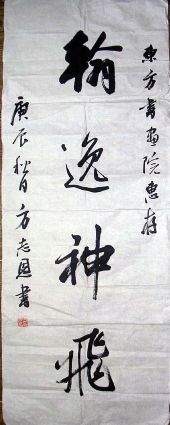 東方書画院惠存
翰逸神飛
庚辰秋日方志恩書